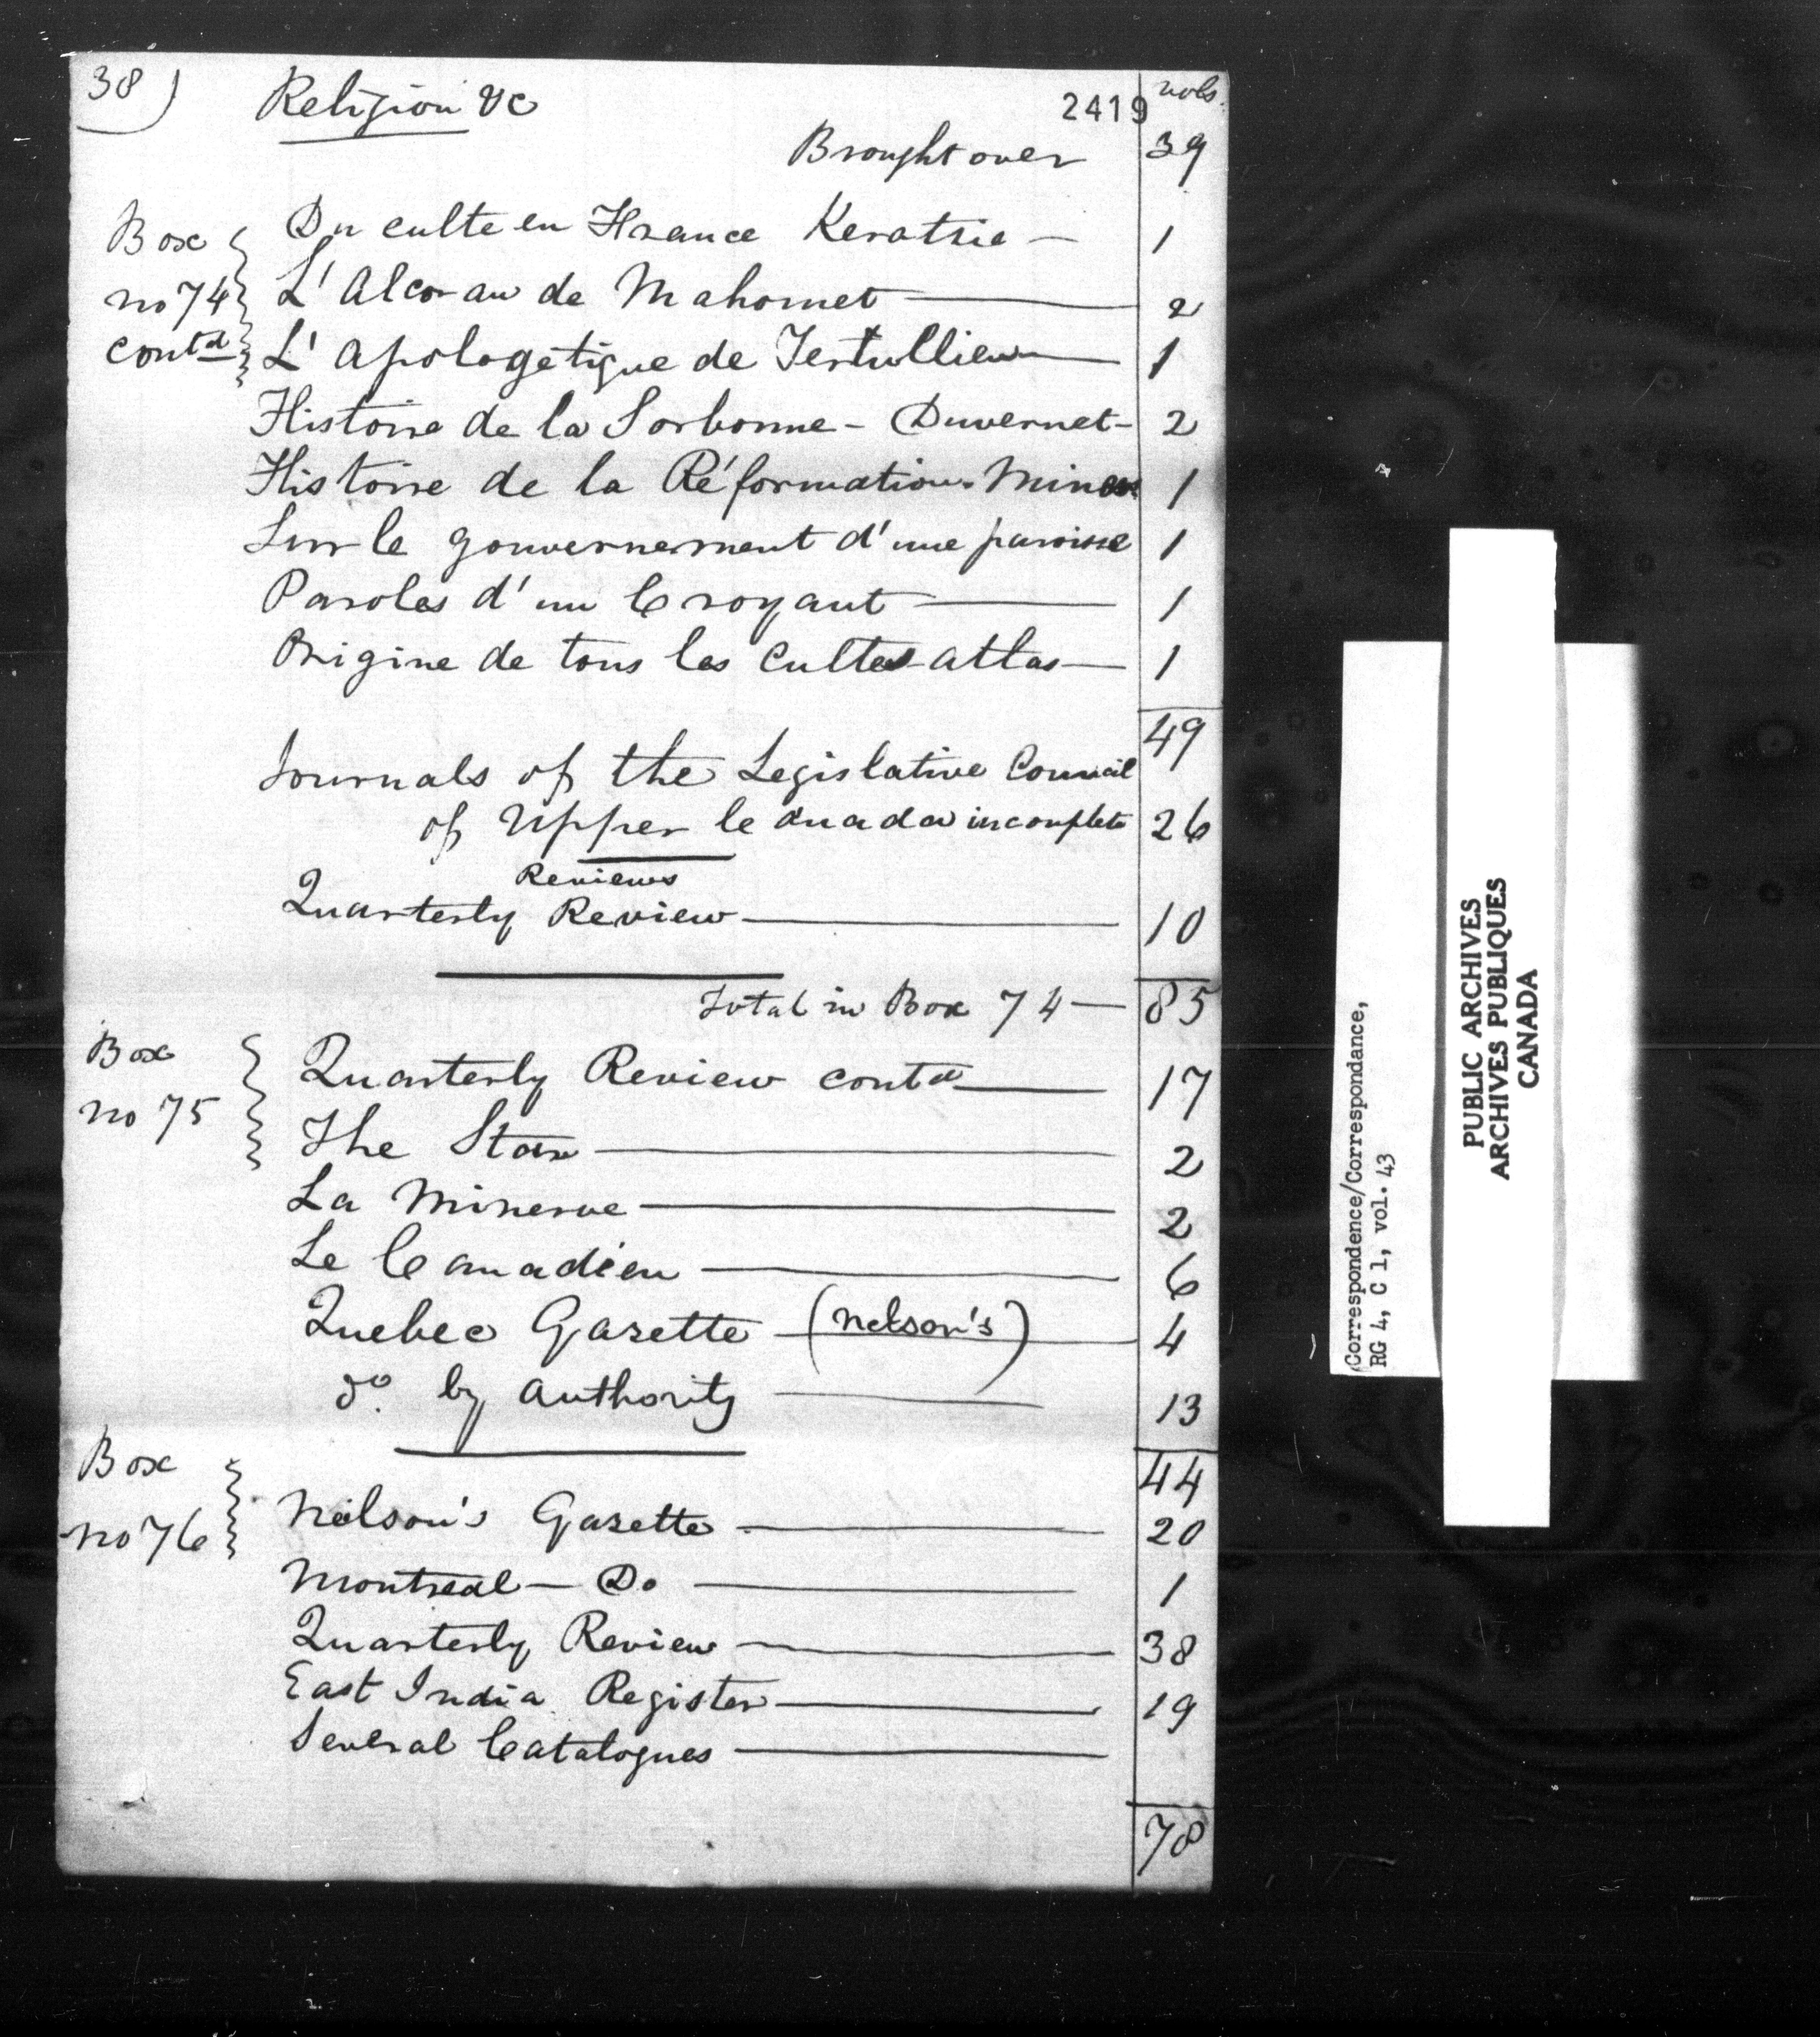 38) Religion &c 2419 vols.
Brought over 39
Box no 74 contd
Du culte en France Keratrie — 1
L'Alcoran de Mahomet — 2
L'Apologétique de Tertullien — 1
Histoire de la Sorbonne - Duvernet - 2
Histoire de la Réformation. 1
Sur le gouvernement d'une paroisse 1
Paroles d'un Croyant — 1
Origine de tous les Cultes atlas — 1
49
Journals of the Legislative Council
of Upper Canada incomplete 26
Reviews
Quarterly Review — 10
Total in Box 74 — 85
Box no 75
Quarterly Review contd — 17
The Star — 2
La Minerve — 2
Le Canadien — 6
Quebec Gazette — (Nelson's) 4
do. by Authority — 13
44
Box no 76
Neilson's Gazette — 20
Montreal — Do — 1
Quarterly Review — 38
East India Register — 19
Several Catalogues —
78
Correspondence/Correspondance,
RG 4, C 1, vol. 43
PUBLIC ARCHIVES
ARCHIVES PUBLIQUES
CANADA